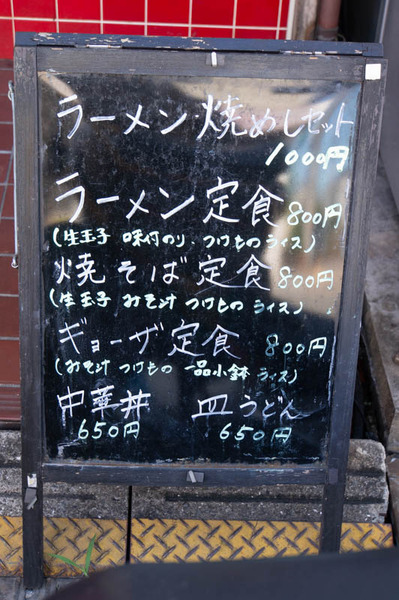 ラーメン 焼めしセット
1000円
ラーメン定食 800円
(生玉子 味付のり、つけもの ライス)
焼そば定食 800円
(生玉子 おそ汁 つけもの ライス)
ギョーザ定食 800円
(おそ汁 つけもの 一品小鉢 ライス)
中華丼 皿うどん
650円 650円